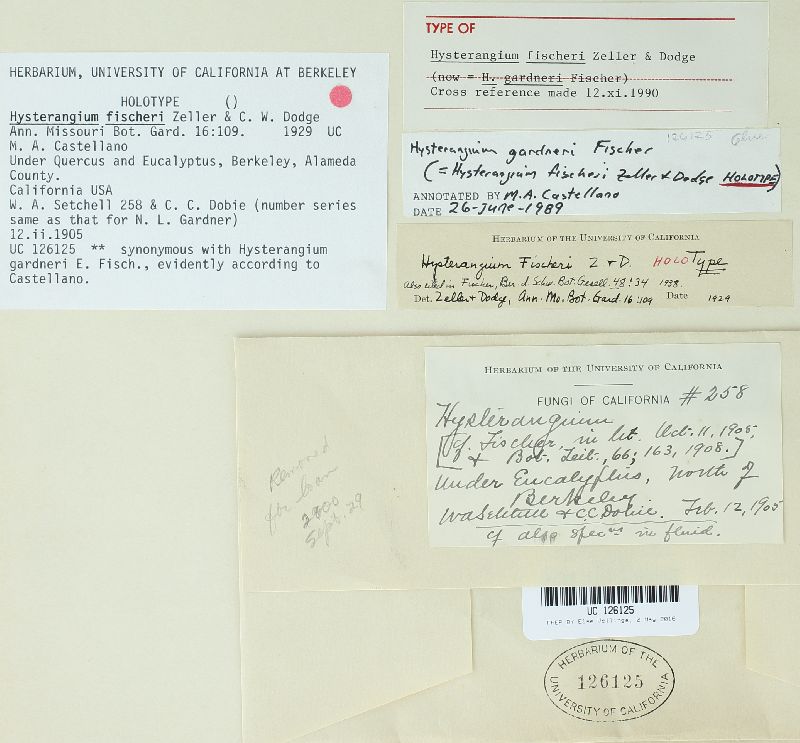 HERBARIUM, UNIVERSITY OF CALIFORNIA AT BERKELEY
HOLOTYPE ()
Hysterangium fischeri Zeller & C. W. Dodge
Ann. Missouri Bot. Gard. 16:109. 1929 UC
M. A. Castellano
Under Quercus and Eucalyptus, Berkeley, Alameda
County.
California USA
W. A. Setchell 258 & C. C. Dobie (number series
same as that for N. L. Gardner)
12.ii.1905
UC 126125 ** synonymous with Hysterangium
gardneri E. Fisch., evidently according to
Castellano.
TYPE OF
Hysterangium fischeri Zeller & Dodge
(now = H. gardneri Fischer)
Cross reference made 12.xi.1990
126125
Hysterangium gardneri Fischer
(= Hysterangium fischeri Zeller & Dodge HOLOTYPE)
ANNOTATED BY M.A. Castellano
DATE 26-June-1989
HERBARIUM OF THE UNIVERSITY OF CALIFORNIA
Hysterangium Fischeri Z + D. HOLOType
Also cited in Fischer, Ber. d. Schw. Bot. Gesell. 48:34 1938.
Det. Zeller + Dodge, Ann. Mo. Bot. Gard. 16:109 Date 1929
HERBARIUM OF THE UNIVERSITY OF CALIFORNIA
FUNGI OF CALIFORNIA #258
Hysterangium
[cf. Fischer, in lit. Oct. 11, 1905,
& Bot. Zeit., 66; 163, 1908.]
Under Eucalyptus, North of
Berkeley
WASetchell & CCDobie. Feb. 12, 1905
cf also specns in fluid.
Removed
for loan
2800
Sept. 29
UC 126125
HERBARIUM OF THE
126125
UNIVERSITY OF CALIFORNIA